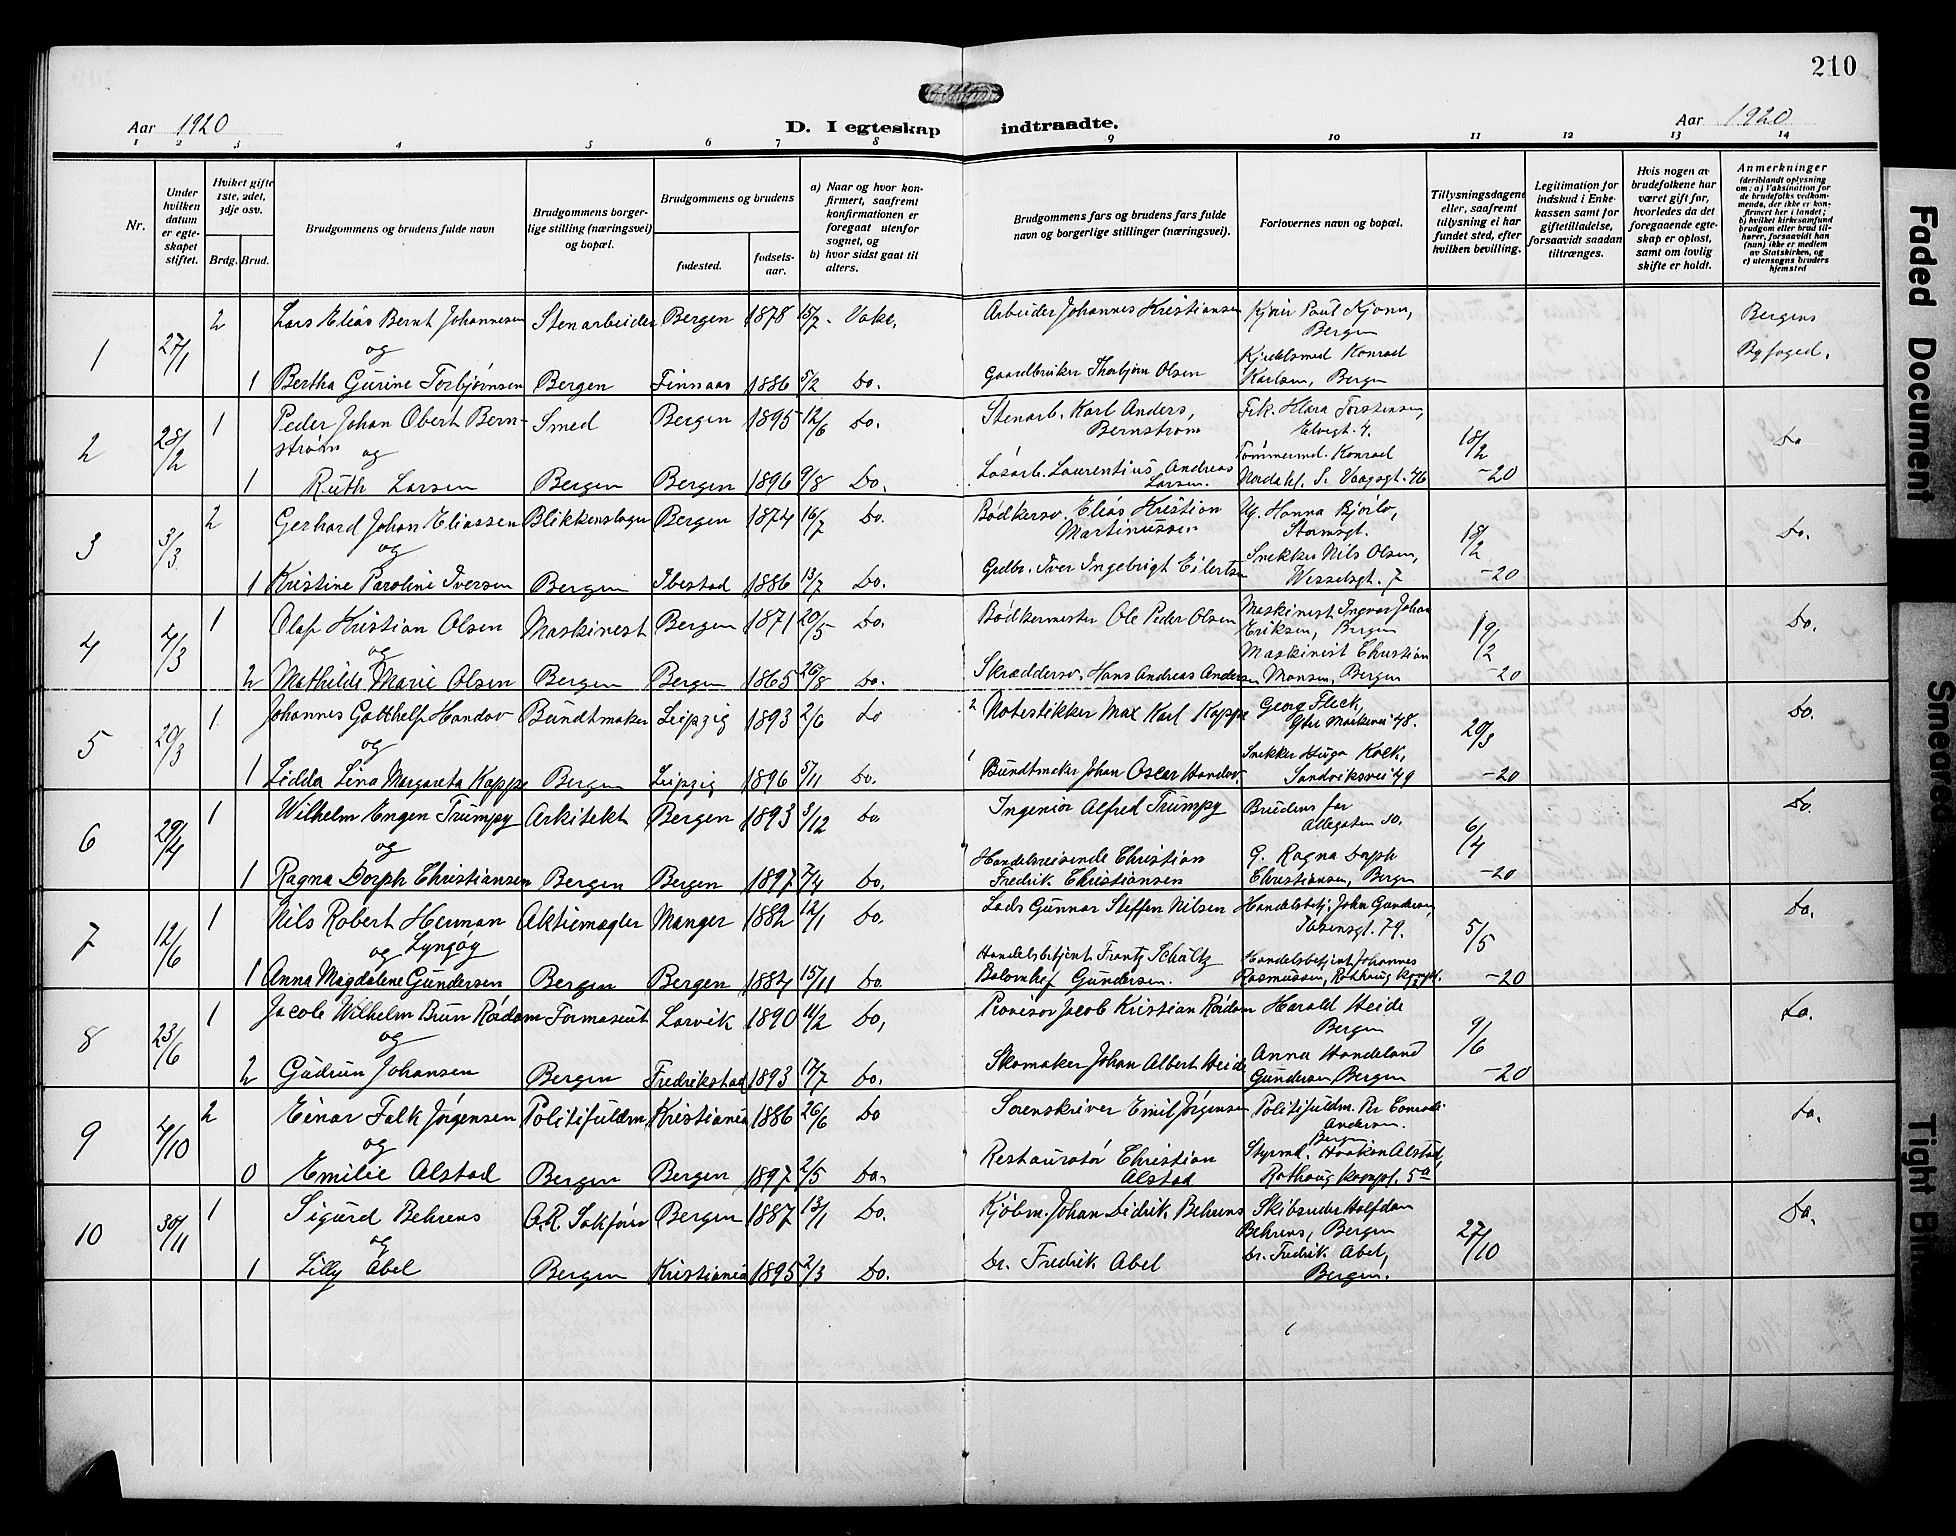 210
Aar 1920
D. I egteskap indtraadte.
Aar 1920
1 2 3 4 5 6 7 8 9 10 11 12 13 14
Nr.
Under hvilken datum er egteskapet stiftet.
Hvilket gifte 1ste, 2det, 3dje osv.
Brdg. Brud.
Brudgommens og brudens fulde navn
Brudgommens borgerlige stilling (næringsvei) og bopæl.
Brudgommens og brudens
fødested.
fødselsaar.
a) Naar og hvor konfirmert, saafremt konfirmationen er foregaat utenfor sognet, og
b) hvor sidst gaat til alters.
Brudgommens fars og brudens fars fulde navn og borgerlige stillinger (næringsvei).
Forlovernes navn og bopæl.
Tillysningsdagene eller, saafremt tillysning ei har fundet sted, efter hvilken bevilling.
Legitimation for indskud i Enkekassen samt for giftetilladelse, forsaavidt saadan tiltrænges.
Hvis nogen av brudefolkene har været gift før, hvorledes da det foregaaende egteskap er opløst, samt om lovlig skifte er holdt.
Anmerkninger
(deriblandt oplysning om: a) Vaksination for de brudefolks vedkommende, der ikke er konfirmert her i landet; b) hvilket kirkesamfund brudgom eller brud tilhører, forsaavidt han (hun) ikke er medlem av Statskirken, og c) utensogns bruders hjemsted
1 27/1 2 Lars Elias Bernt Johannesen Stenarbeider Bergen 1878 15/7 Vake. Arbeider Johannes Kristiansen Bergen Bergens Byfoged.
og
1 Bertha Gurine Torbjørnsen Bergen Finnaas 1886 5/2 Do. Gaardbruker Thorbjørn Olsen Konrad Karlsen, Bergen
2 28/2 1 Peder Johan Obert Bernstrøm Smed Bergen 1895 12/6 Do. Stenarb. Karl Anders, Bernstrøm Frk. Klara Torstensen, Elvegt. 4. 18/2 -20 Do
og
1 Ruth Larsen Bergen Bergen 1896 9/8 Do. Løsarb. Laurentius Andreas Larsen. Tømmermd. Konrad Nordahl, S. Vaagsgt. 46
3 3/3 2 Gerhard Johan Eliassen Blikkenslager Bergen 1874 16/7 Do. Bødkersv. Elias Kristian Martinussen Hanna Stormsgt. 18/2 -20 Do.
og
1 Kristine Paroline Iversen Bergen Ibestad 1886 13/7 Do. Grdbr. Iver Ingebrigt Eilertsen Snekker Nils Olsen, Wesselsgt. 7
4 4/3 1 Olaf Kristian Olsen Maskinest Bergen 1871 20/5 Do. Bødkermester Ole Peder Olsen Maskinest Ingvar Johan Eriksen, Bergen 19/2 -20 Do.
og
2 Mathilde Marie Olsen Bergen Bergen 1865 26/8 Do. Skræddersv. Hans Andreas Andersen Maskinist Christian Monsen, Bergen
5 20/3 1 Johannes Gotthelf Handov Bundtmaker Leipzig 1893 2/6 Do 2 Notestikker Max Karl Kappe Georg Fleck, Ytre Markevei 48. 20/3 -20 Do.
og
1 Lidda Lina Margareta Kappe Bergen Leipzig 1896 5/11 Do. 1 Bundtmaker Johan Oscar Handov. Snekker Hugo Kock, Sandviksvei 49
6 29/4 1 Wilhelm Engen Trumpy Arkitekt Bergen 1893 3/12 Do Ingeniør Alfred Trumpy Brudens far Allegaten 6/4 -20 Do.
og
1 Ragna Dorph Christiansen Bergen Bergen 1897 7/4 Do. Handelsreisende Christian Fredrik Christiansen Ragna Dorph Christiansen, Bergen
7 12/6 1 Nils Robert Herman Lyngøy Aktiemægler Manger 1882 12/1 Do. Lods Gunnar Steffen Nilsen Handelsbetj. John Gundersen, Ibsensgt. 79. 5/5 -20 Do.
og
1 Anna Magdalene Gundersen Bergen Bergen 1884 15/11 Do. Handelsbetjent Frantz Schultz Gundersen. Handelsbetjent Johannes Rasmussen, Rothaug kompl.
8 23/6 1 Jacob Wilhelm Brun Rørdam Farmaseut Larvik 1890 11/2 Do. Provisor Jacob Kristian Rørdam Harald Heide Bergen 9/6 -20 Do.
og
2 Gudrun Johansen Bergen Fredrikstad 1893 17/7 Do. Skomaker Johan Albert Heide Anna Handeland Gundersen, Bergen
9 4/10 2 Einar Falk Jørgensen Politifuldm. Kristiania 1886 26/6 Do Sorenskriver Emil Jørgensen Politifuldm. Per Conradi Andersen. Bergen Do.
og
0 Emilie Alstad Bergen Bergen 1897 2/5 Do. Restauratør Christian Alstad Styrmd. Haakon Alstad, Rothaug kompl. 5a
10 30/11 1 Sigurd Behrens O.R. Sakfører Bergen 1887 13/1 Do. Kjøbm. Johan Didrik Behrens Skibsreder Halfdan Behrens, Bergen 27/10 Do.
og
1 Lilly Abel Bergen Kristiania 1895 2/3 Do. Dr. Fredrik Abel Dr. Fredrik Abel, Bergen.
Faded Document
Smeared
Tight Bin